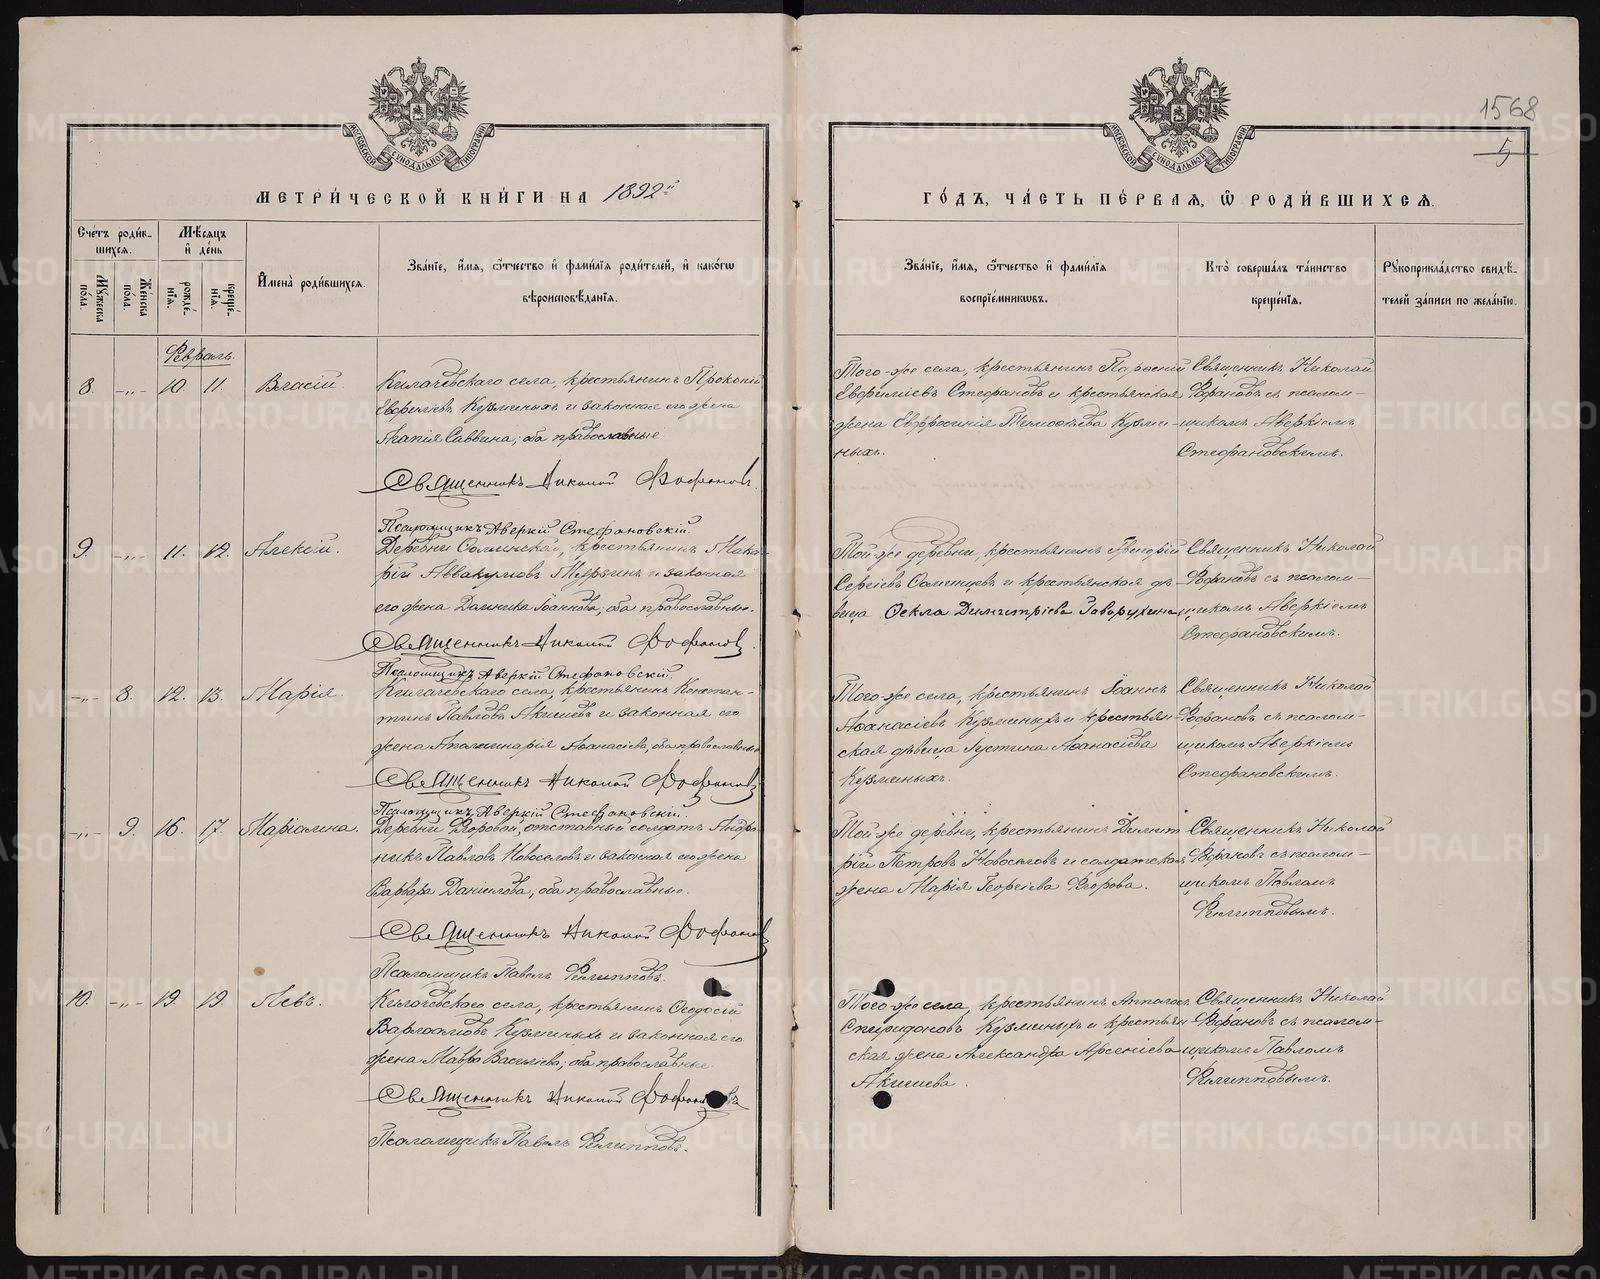 1568
5
МОСКОВСКОЙ СУНОДАЛЬНОЙ ТИПОГРАФІИ
МОСКОВСКОЙ СУНОДАЛЬНОЙ ТИПОГРАФІИ
МЕТРИ́ЧЕСКОЙ КНИ́ГИ НА 1892й
ГО́ДЪ, ЧА́СТЬ ПЕ́РВАѦ, Ѡ РОДИ́ВШИХСѦ.
Сче́тъ роди́в-
шихсѧ.
Мꙋжеска
по́ла.
Же́нска
по́ла.
Мѣ́сѧцъ
и҆ де́нь
рожде́-
нїѧ.
креще́-
нїѧ.
И҆мена̀ роди́вшихсѧ.
Зва́нїе, и҆́мѧ, ѻ҆́тчество и҆ фами́лїѧ роди́телей, и҆ како́гѡ
вѣроисповѣ́данїѧ.
Зва́нїе, и҆́мѧ, ѻ҆́тчество и҆ фами́лїѧ
воспрїе́мникѡвъ.
Кто̀ соверша́лъ та́инство
креще́нїѧ.
Рꙋкоприкла́дство свидѣ́-
телей за́писи по жела́нїю.
Февраль.
8. -„- 10. 11. Власій.
Килачевскаго села, крестьянинъ Прокопій
Евфиміевъ Кузминыхъ и законная его жена
Агапія Саввина, оба православные
Священникъ Николай Фофановъ
Псаломщикъ Аверкій Стефановскій.
Того-же села, крестьянинъ
Евфиміевъ Стефановъ и крестьянская
жена Евфросинія Тимофеева Кузми-
ныхъ.
Священникъ Николай
Фофановъ съ псалом-
щикомъ Аверкіемъ
Стефановскимъ.
9. -„- 11. 12. Алексій.
Деревни Соминской, крестьянинъ Мака-
рій Аввакумовъ Мурзинъ и законная
его жена Домника Іоаннова, оба православные.
Священникъ Николай Фофановъ
Псаломщикъ Аверкій Стефановскій.
Той же деревни, крестьянинъ Григорій
Сергіевъ Соминцевъ и крестьянская дѣ-
вица Ѳекла Димитріева Говорухина
Священникъ Николай
Фофановъ съ псалом-
щикомъ Аверкіемъ
Стефановскимъ.
-„- 8. 12. 13. Марія.
Килачевскаго села, крестьянинъ Констан-
тинъ Павловъ Акишевъ и законная его
жена Аполинарія Аѳанасіева, оба православные
Священникъ Николай Фофановъ
Псаломщикъ Аверкій Стефановскій.
Того-же села, крестьянинъ Іоаннъ
Аѳанасіевъ Кузминыхъ и крестьян-
ская дѣвица Іустина Аѳанасіева
Кузминыхъ.
Священникъ Николай
Фофановъ съ псалом-
щикомъ Аверкіемъ
Стефановскимъ.
-„- 9. 16. 17. Маріамна.
Деревни Ѳоровой, отставный солдатъ Андро-
никъ Павловъ Новоселовъ и законная его жена
Варвара Даниилова, оба православные.
Священникъ Николай Фофановъ
Псаломщикъ Павелъ Филипповъ.
Той же деревни, крестьянинъ Димит
рій Петровъ Новоселовъ и солдатская
жена Марія Георгіева Ѳорова.
Священникъ Николай
Фофановъ съ псалом-
щикомъ Павломъ
Филипповымъ.
10. -„- 19. 19. Левъ.
Килачевскаго села, крестьянинъ Ѳеодосій
Варлаамовъ Кузминыхъ и законная его
жена Мавра Василіева, оба православные.
Священникъ Николай Фофановъ
Псаломщикъ Павелъ Филипповъ.
Того-же села, крестьянинъ
Спиридоновъ Кузминыхъ и крестьян-
ская жена Александра Арсеніева
Акишева.
Священникъ Николай
Фофановъ съ псалом-
щикомъ Павломъ
Филипповымъ.
METRIKI.GASO-URAL.RU